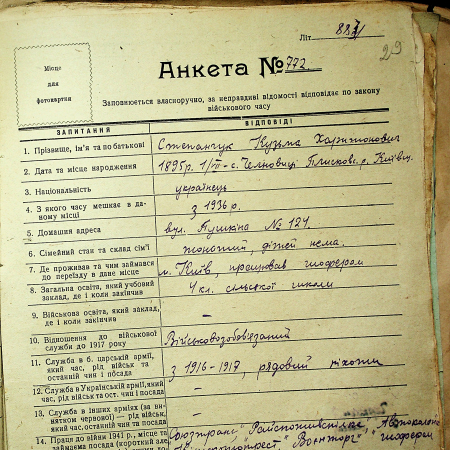 Літ. 88
29
Місце
для
фотокартки
Анкета № 772.
Заповнюється власноручно, за неправдиві відомості відповідає по закону
військового часу
ЗАПИТАННЯ ВІДПОВІДІ
1. Прізвище, ім'я та по батькові Степанчук Кузьма Харитонович
2. Дата та місце народження 1895р. 1/VII - с. Плисков. р. Київщ.
3. Національність українець
4. З якого часу мешкає в да-
ному місці з 1936 р.
5. Домашня адреса вул. Пушкіна № 121.
6. Сімейний стан та склад сім'ї жонатий, дітей нема.
7. Де проживав та чим займався
до переїзду в дане місце м. Київ, працював шофером
8. Загальна освіта, який учбовий
заклад, де і коли закінчив 4 кл. сільської школи
9. Військова освіта, який заклад,
де і коли закінчив —
10. Відношення до військової
служби до 1917 року Військовозобов'язаний
11. Служба в б. царській армії,
час, рід військ та
останній чин і посада з 1916-1917, рядовий піхоти
12. Служба в Українській армії, який
час, рід військ та ост. чин і посада —
13. Служба в інших арміях (за ви-
нятком червоної) — рід військ,
який час, останній чин та посада —
14. Праця до війни 1941 р., місце та
займана посада (коротко але "Союзтранс", "Автоколона"
"Воєнторг", шофером